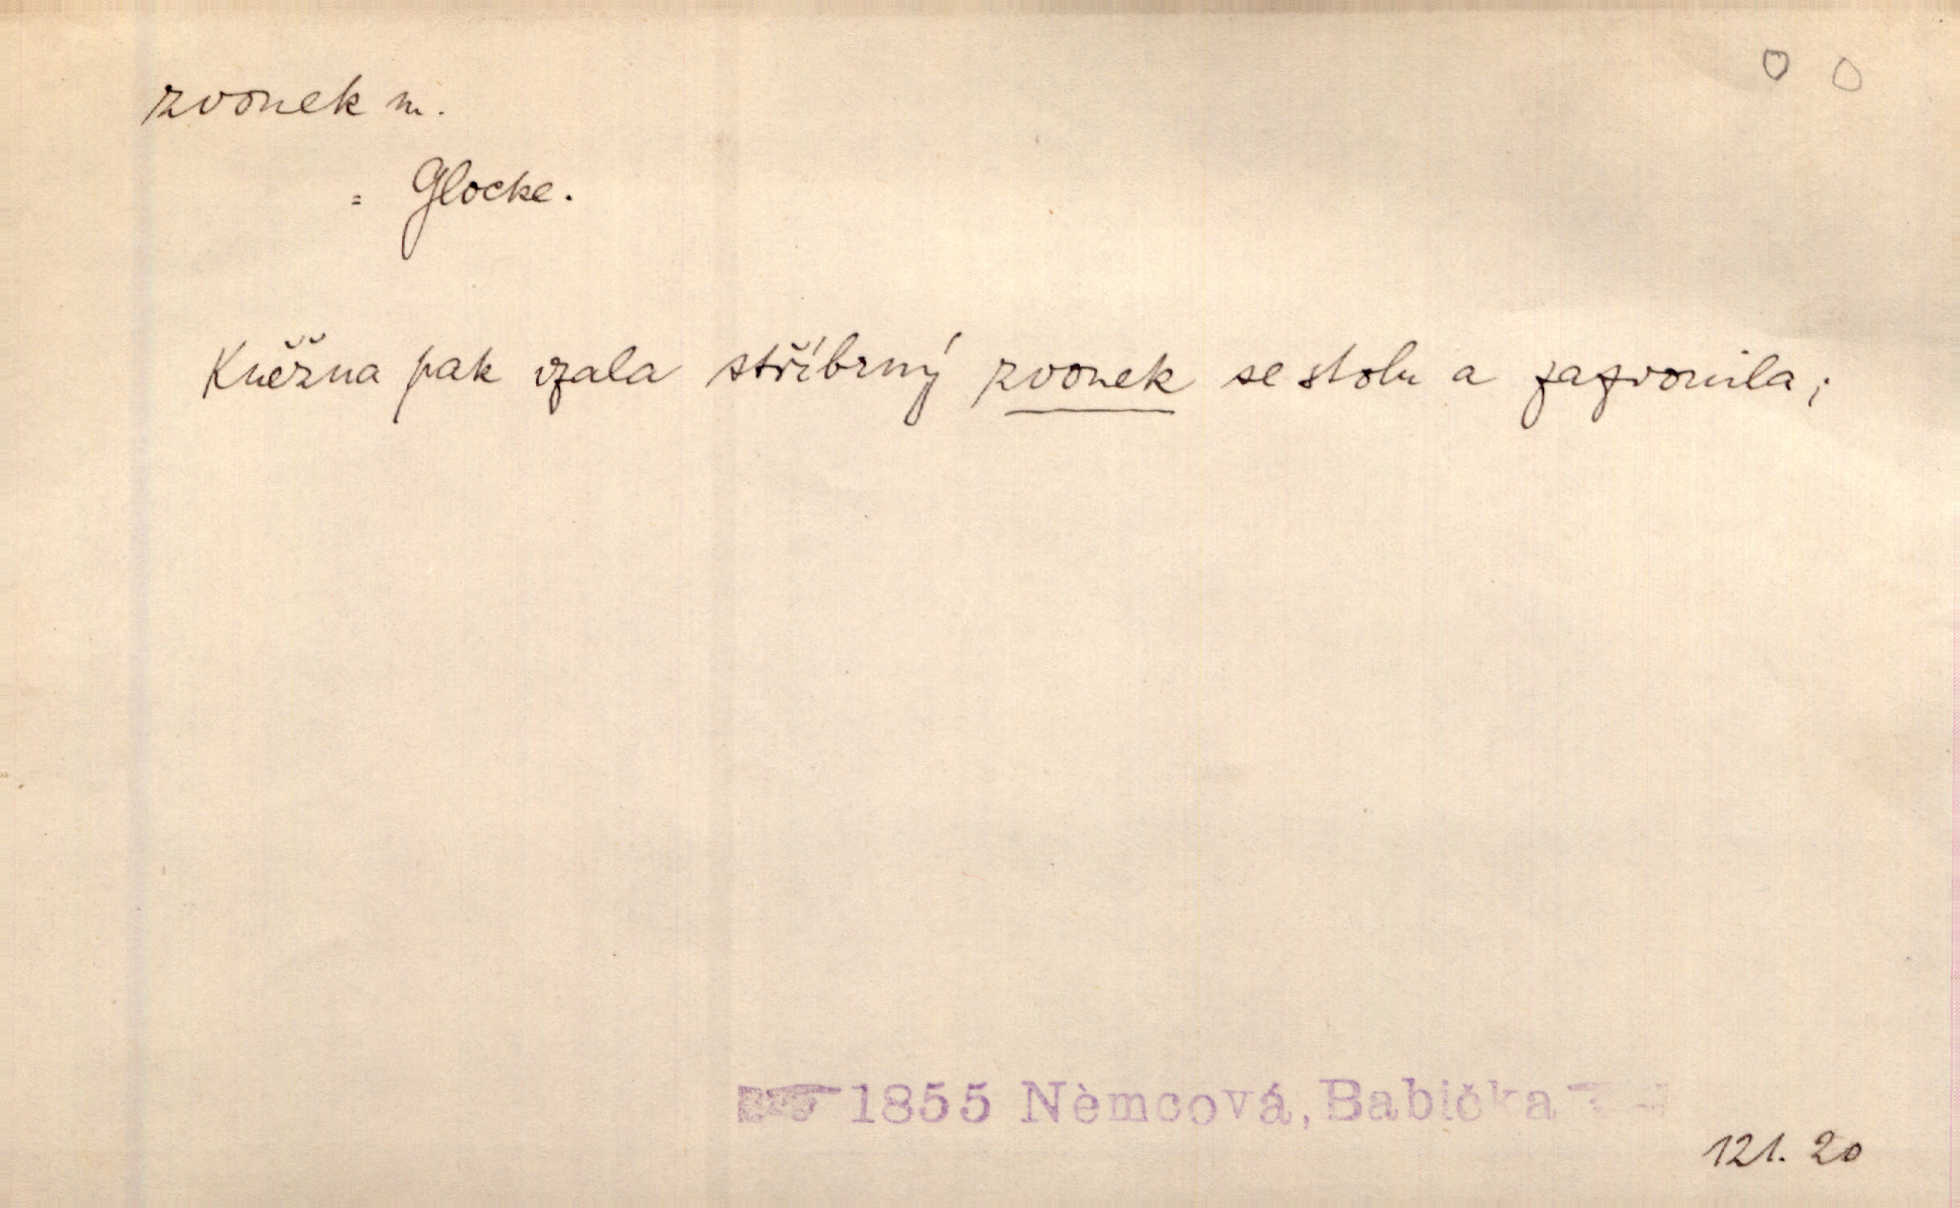 zvonek m.
= Glocke.
Kněžna pak vzala stříbrný zvonek se stolu a zazvonila;
1855 Němcová, Babička
121. 20